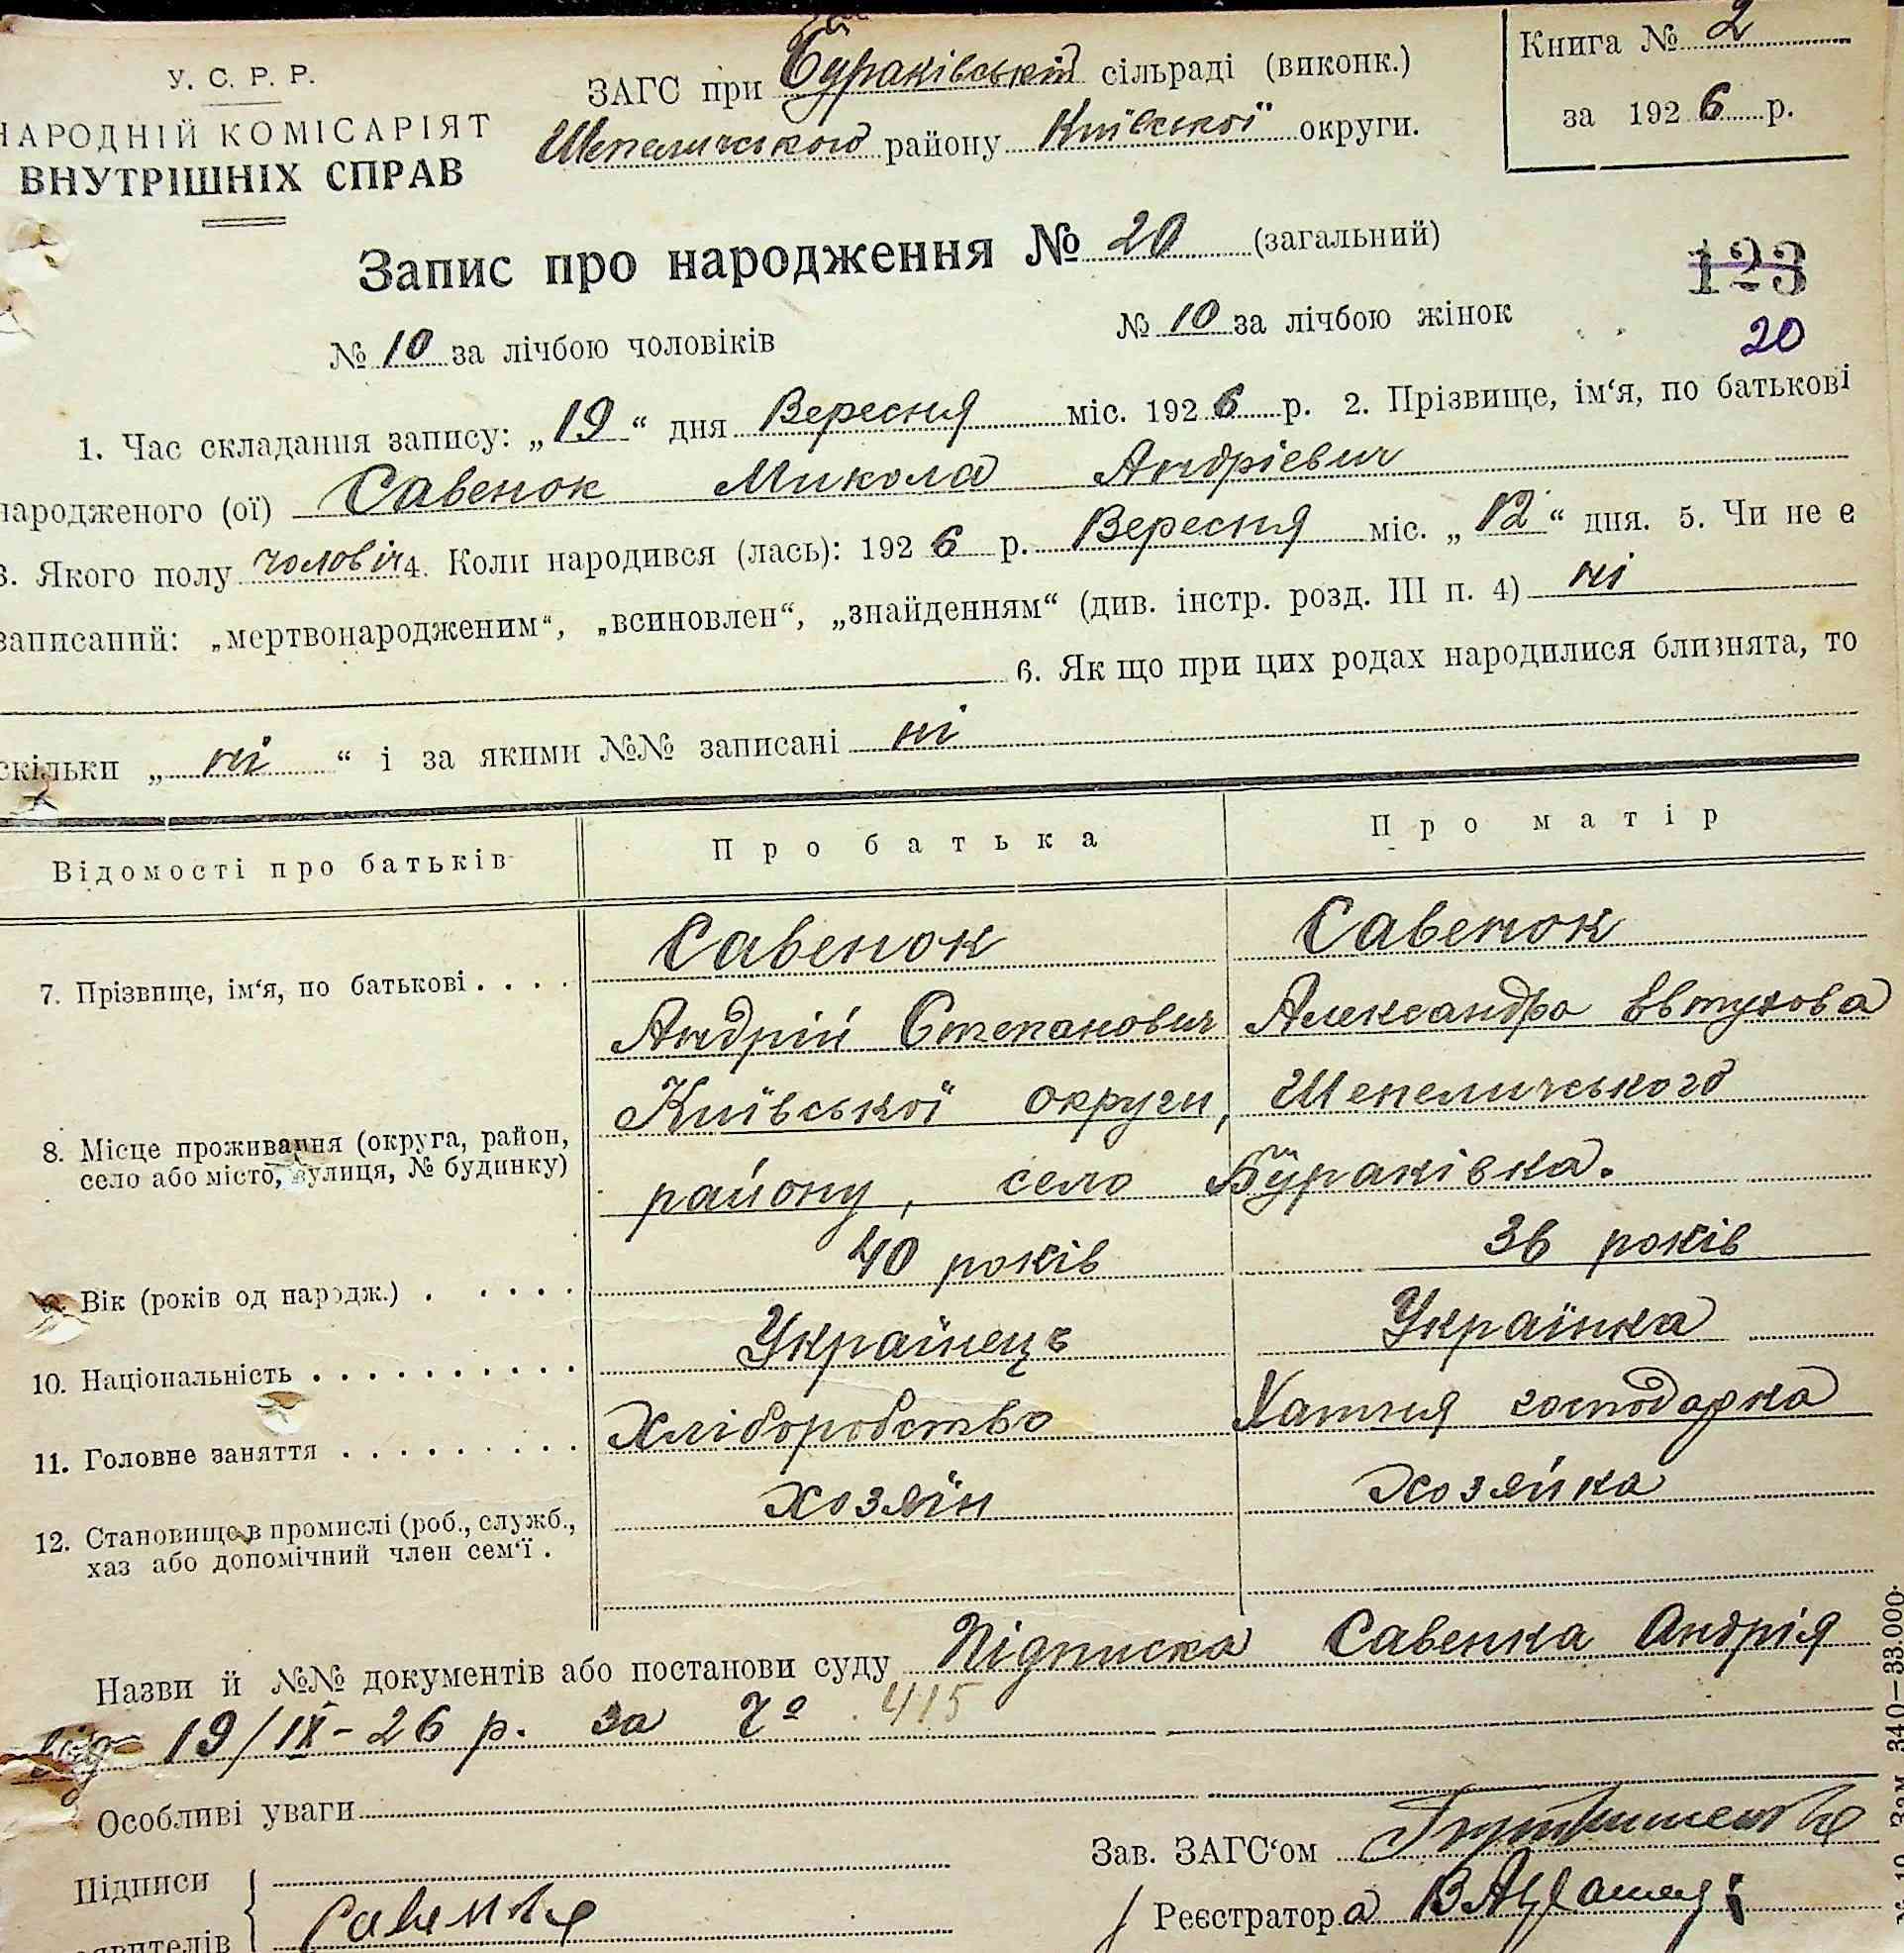 У. С. Р. Р.
НАРОДНІЙ КОМІСАРІЯТ
ВНУТРІШНІХ СПРАВ
ЗАГС при Бураківській сільраді (виконк.)
Шепелицького району Київської округи.
Книга № 2
за 1926 р.
Запис про народження № 20 (загальний)
123
20
№ 10 за лічбою чоловіків № 10 за лічбою жінок
1. Час складання запису: „19“ дня Вересня міс. 1926 р. 2. Прізвище, ім‘я, по батькові
народженого (ої) Савенок Микола Андрієвич
3. Якого полу чоловіч 4. Коли народився (лась): 1926 р. Вересня міс. „12“ дня. 5. Чи не є
записаний: „мертвонародженим“, „всиновлен“, „знайденням“ (див. інстр. розд. III п. 4) ні
6. Як що при цих родах народилися близнята, то
скільки „ні“ і за якими №№ записані ні
Відомості про батьків Про батька Про матір
7. Прізвище, ім‘я, по батькові . . . . Савенок Савенок
Андрій Степанович Александра Евтухова
8. Місце проживання (округа, район,
село або місто, вулиця, № будинку)
Київської округи, Шепеличського
району, село Бураківка.
9. Вік (років од народж.) . . . . . 40 років 36 років
10. Національність . . . . . . . . . . Українець Українка
11. Головне заняття . . . . . . . . . Хліборобство Хатня господарка
12. Становище в промислі (роб., служб.,
хаз або допомічний член сем‘ї .
хозяїн хозяйка
Назви й №№ документів або постанови суду Підписка Савенка Андрія
від 19/IX-26 р. за № 415
Особливі уваги
Зав. ЗАГС‘ом
Підписи
Реєстратора
явителів
Савенок
340—33.000.